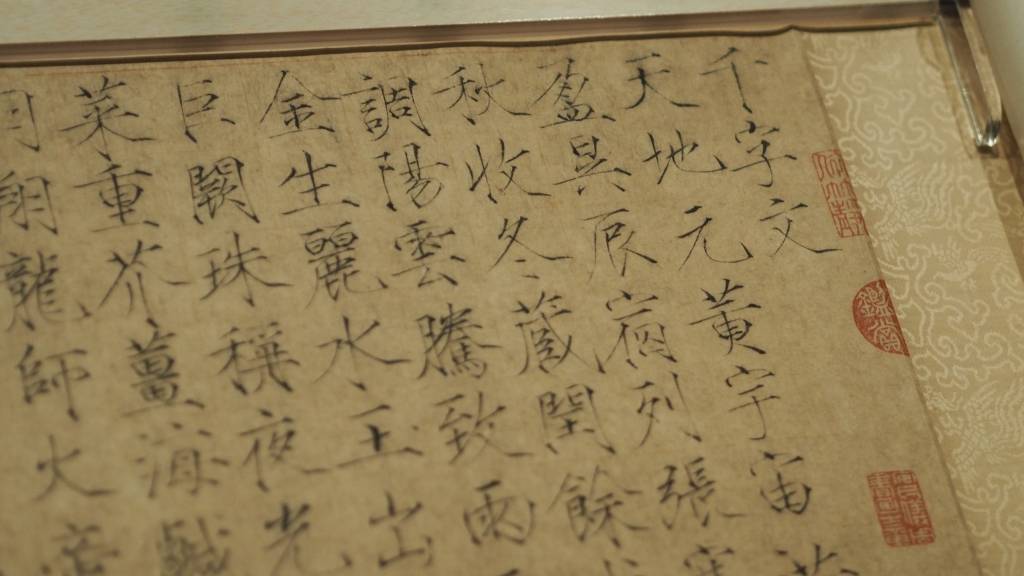 千字文
天地元黃宇宙
盈昃辰宿列張寒
秋收冬藏閏餘
調陽雲騰致雨
金生麗水玉出
巨闕珠稱夜光
菜重芥薑海鹹
羽翔龍師火帝